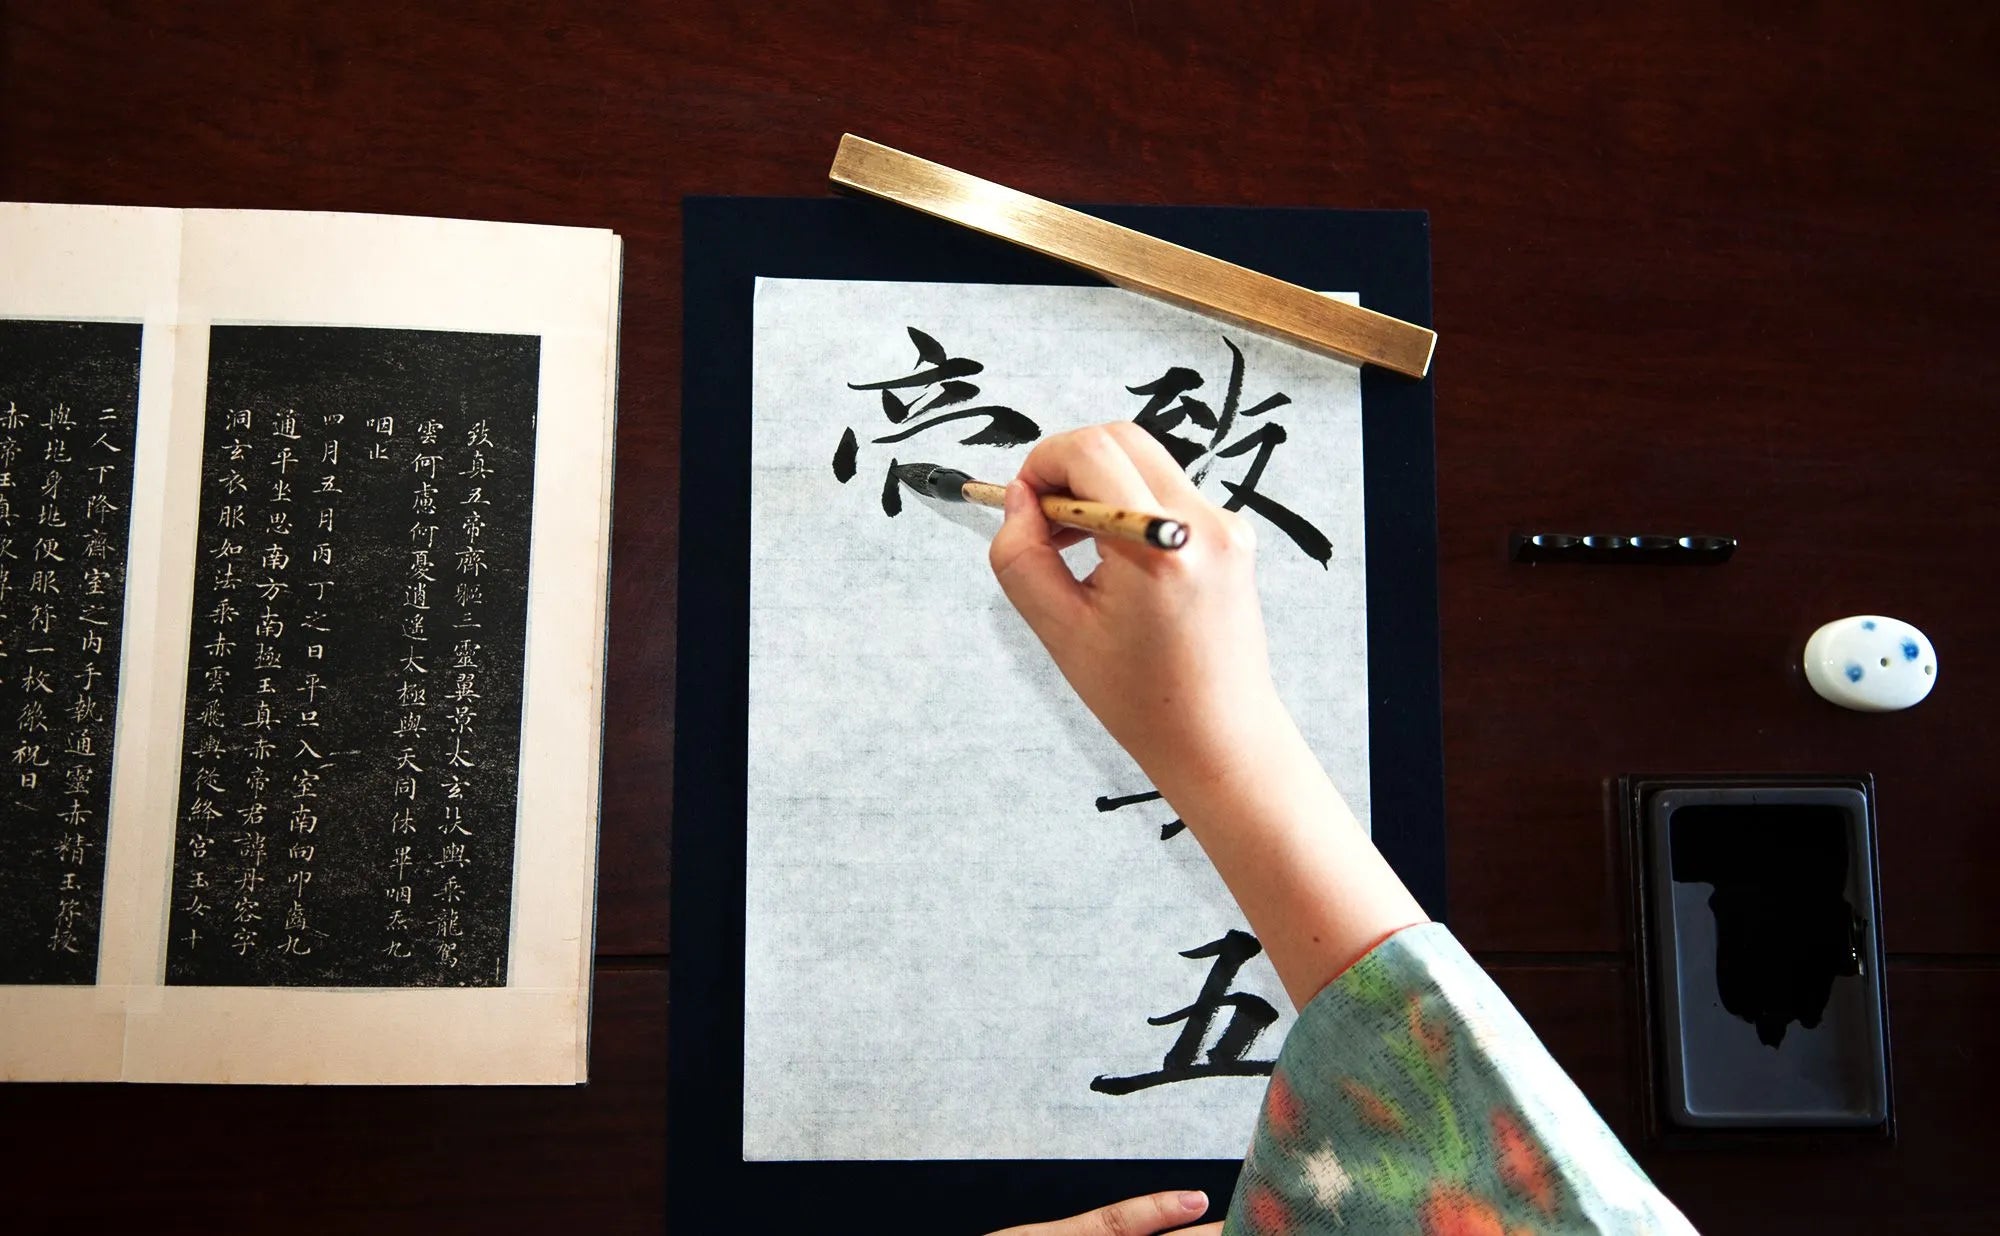 致五
致真五帝齊軀三靈翼景太玄扶輿乘龍駕
雲何慮何憂逍遙太極與天同休畢咽炁九
咽止
四月五月丙丁之日平旦入室南向叩齒九
通平坐思南方南極玉真赤帝君諱丹容字
洞玄衣服如法乘赤雲飛輿從絳宮玉女十
二人下降齋室之內手執通靈赤精玉符授
與兆身兆便服符一枚微祝曰
赤帝玉真